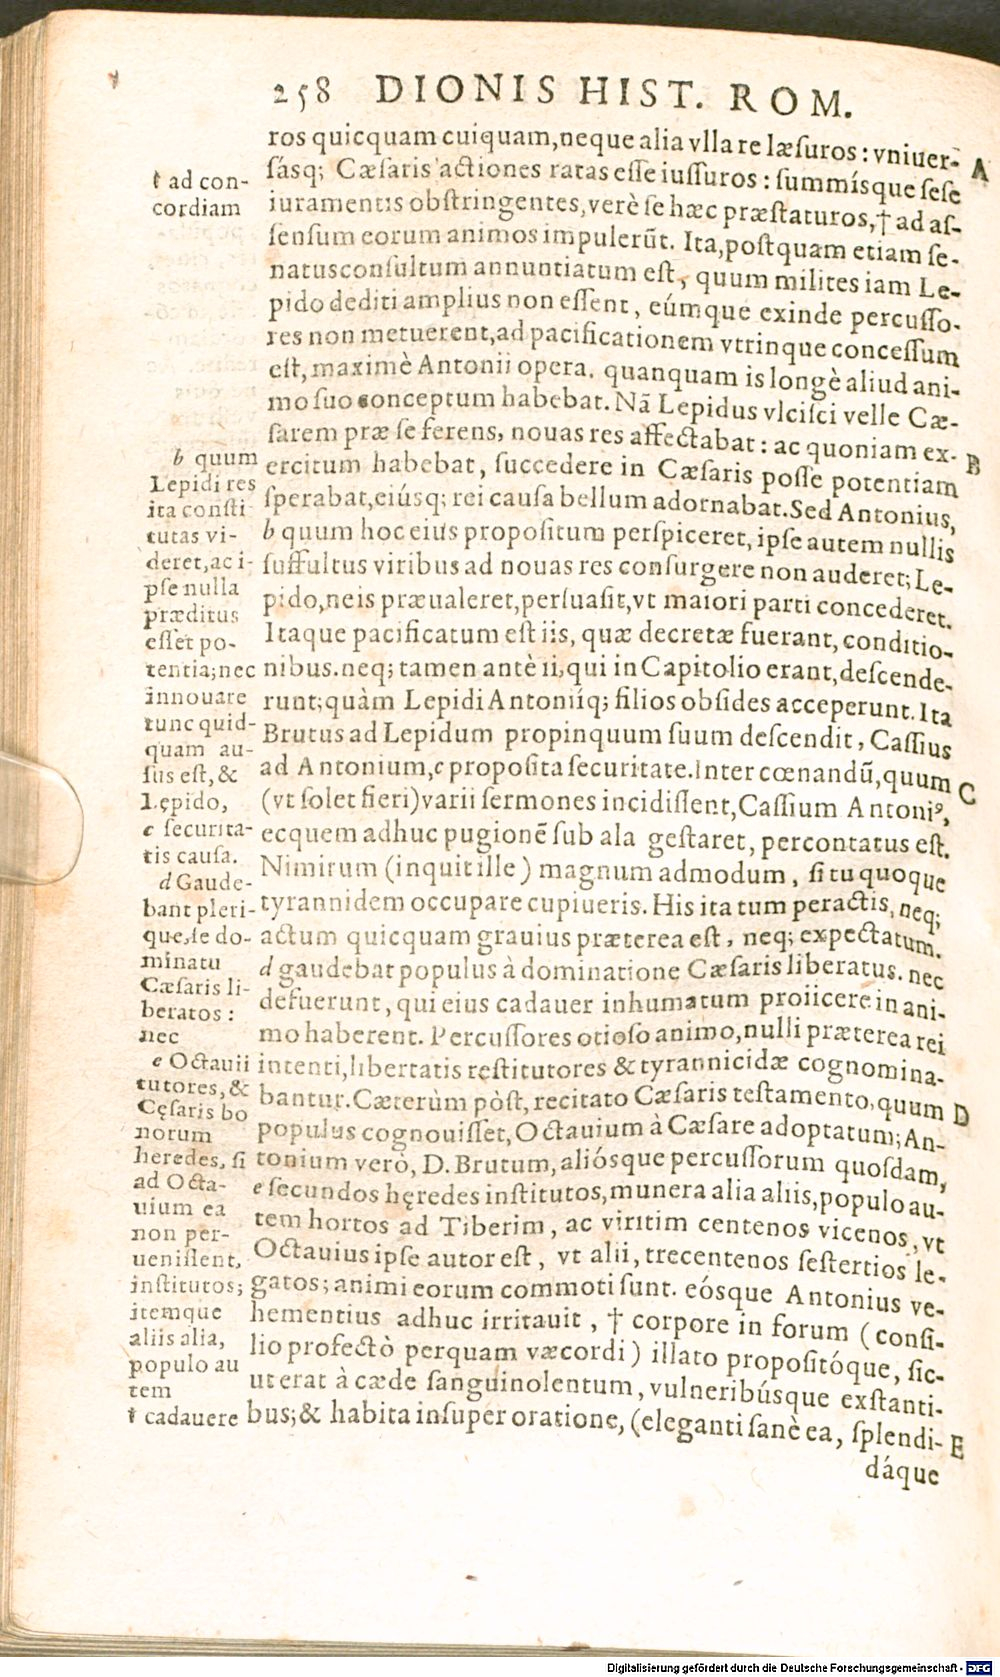 258 DIONIS HIST. ROM.
ros quicquam cuiquam, neque alia vlla re læsuros: vniuer-
A
sásq; Cæsaris actiones ratas esse iussuros: summísque sese
iuramentis obstringentes, verè se hæc præstaturos, † ad as-
sensum eorum animos impulerūt. Ita, postquam etiam se-
natusconsultum annuntiatum est, quum milites iam Le-
pido dediti amplius non essent, eúmque exinde percusso-
res non metuerent, ad pacificationem vtrinque concessum
est, maximè Antonii opera. quanquam is longè aliud ani-
mo suo conceptum habebat. Nā Lepidus vlcisci velle Cæ-
sarem præ se ferens, nouas res affectabat: ac quoniam ex-
B
ercitum habebat, succedere in Cæsaris posse potentiam
sperabat, eiúsq; rei causa bellum adornabat. Sed Antonius,
b quum hoc eius propositum perspiceret, ipse autem nullis
suffultus viribus ad nouas res consurgere non auderet; Le-
pido, ne is præualeret, persuasit, vt maiori parti concederet.
Itaque pacificatum est iis, quæ decretæ fuerant, conditio-
nibus. neq; tamen antè ii, qui in Capitolio erant, descende-
runt; quàm Lepidi Antoniíq; filios obsides acceperunt. Ita
Brutus ad Lepidum propinquum suum descendit, Cassius
ad Antonium, c proposita securitate. Inter cœnandū, quum
C
(vt solet fieri) varii sermones incidissent, Cassium Antoniꝰ,
ecquem adhuc pugionē sub ala gestaret, percontatus est.
Nimirum (inquit ille) magnum admodum, si tu quoque
tyrannidem occupare cupiueris. His ita tum peractis, neq;
actum quicquam grauius præterea est, neq; expectatum.
d gaudebat populus à dominatione Cæsaris liberatus. nec
defuerunt, qui eius cadauer inhumatum proiicere in ani-
mo haberent. Percussores otioso animo, nulli præterea rei
intenti, libertatis restitutores & tyrannicidæ cognomina-
bantur. Cæterùm pòst, recitato Cæsaris testamento, quum
D
populus cognouisset, Octauium à Cæsare adoptatum; An-
tonium verò, D. Brutum, aliósque percussorum quosdam,
e secundos hęredes institutos, munera alia aliis, populo au-
tem hortos ad Tiberim, ac viritim centenos vicenos, vt
Octauius ipse autor est, vt alii, trecentenos sestertios le-
gatos; animi eorum commoti sunt. eósque Antonius ve-
hementius adhuc irritauit, † corpore in forum (consi-
lio profectò perquam væcordi) illato propositóque, sic-
ut erat à cæde sanguinolentum, vulneribúsque exstanti-
bus; & habita insuper oratione, (eleganti sanè ea, splendi-
E
dáque
† ad con-
cordiam
b quum
Lepidi res
ita consti-
tutas vi-
deret, ac i-
pse nulla
præditus
esset po-
tentia; nec
innouare
tunc quid-
quam au-
sus est, &
Lępido,
c securita-
tis causa.
d Gaude-
bant pleri-
que, se do-
minatu
Cæsaris li-
beratos:
nec
e Octauii
tutores, &
Cęsaris bo
norum
heredes, si
ad Octa-
uium ea
non per-
uenissent,
institutos;
itemque
aliis alia,
populo au
tem
† cadauere
Digitalisierung gefördert durch die Deutsche Forschungsgemeinschaft - DFG